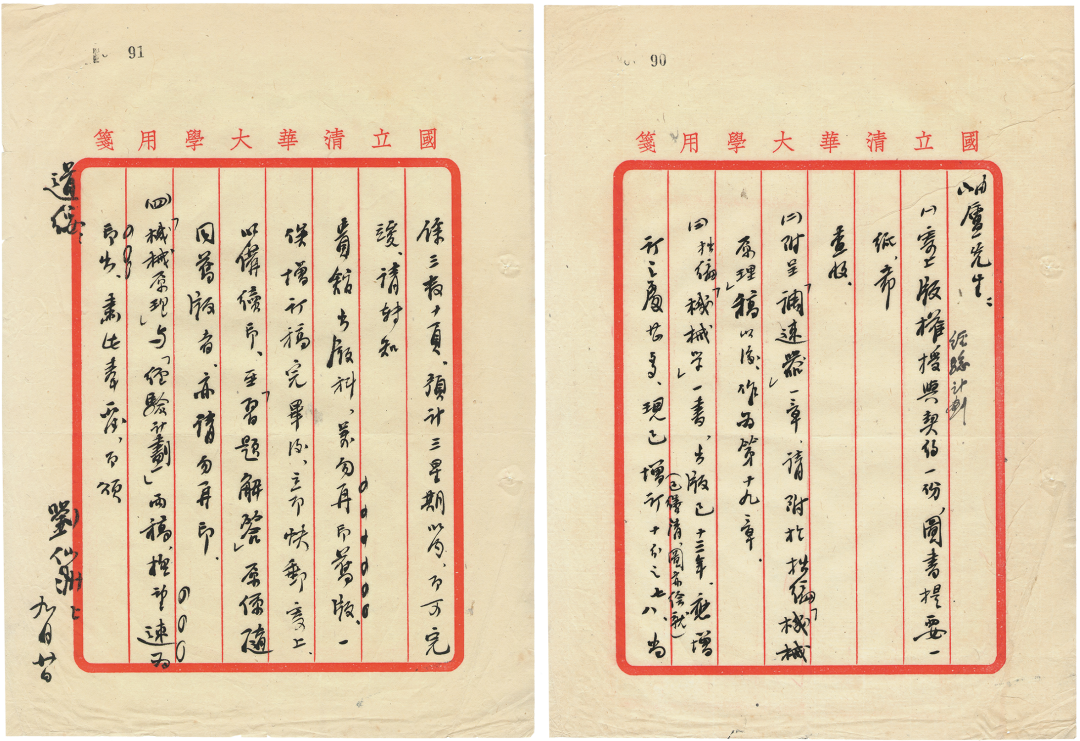 90
國立清華大學用箋
岫廬先生：
㈠寄上經驗計劃版權授與契約一份，圖書提要一
紙，希
查收。
㈡附呈「調速器」一章，請附於拙編「機械
原理」稿以後，作為第十九章。
㈢拙編「機械學」一書，出版已十三年，應增
訂之處甚多，現已增訂十分之七八，（已謄清，圖亦繪就）尚
91
國立清華大學用箋
餘三數十頁，預計三星期以內，即可完
竣，請轉知
貴館出版科，萬勿再印舊版，一
俟增訂稿完畢後，立即快郵寄上，
以備續印，至「習題解答」原係隨
同舊版者，亦請勿再印。
㈣「機械原理」與「經驗計劃」兩稿，極望速為
印出，專此奉懇，即頌
道綏
劉仙洲上
九月廿日